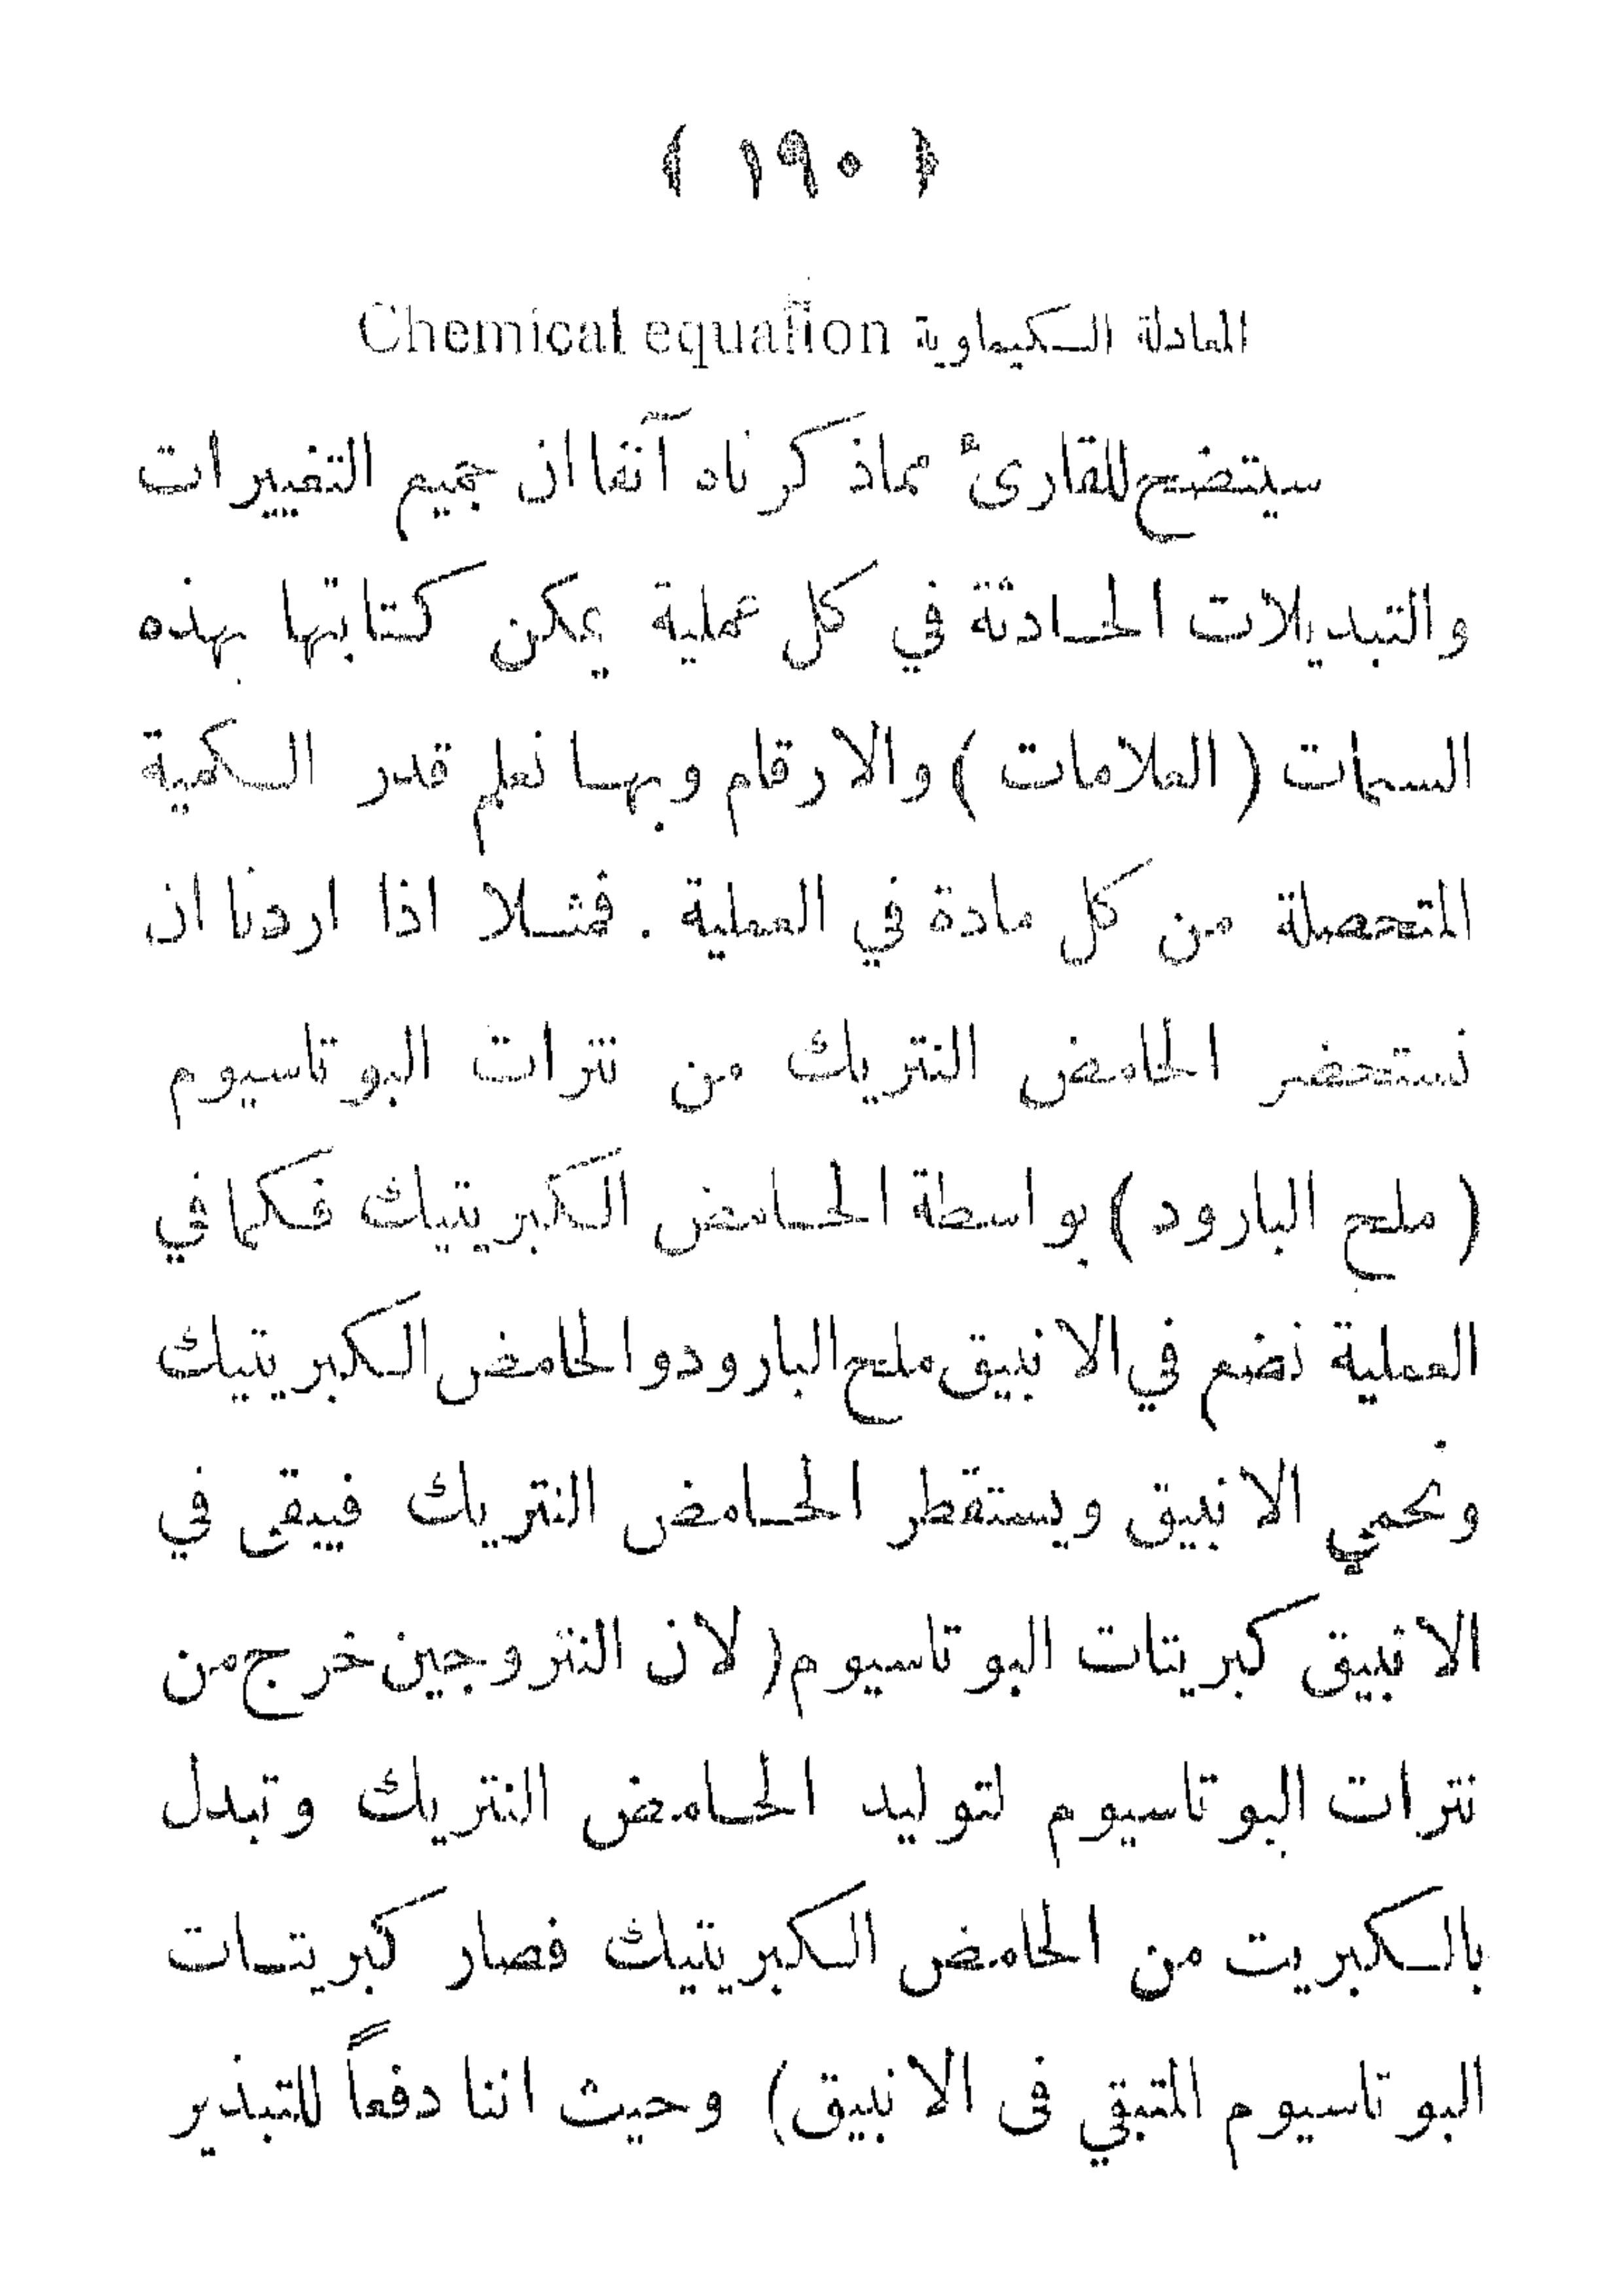 ﴿ ١٩٠ ﴾
المعادلة الكيماوية Chemical equation
سيتضح للقارئ مماذكرناه آنفا ان جميع التغييرات
والتبديلات الحادثة في كل عملية يمكن كتابتها بهذه
السمات ( العلامات ) والارقام وبها نعلم قدر الكمية
المتحصلة من كل مادة في العملية . فمثلا اذا اردنا ان
نستحضر الحامض النتريك من نترات البوتاسيوم
( ملح البارود ) بواسطة الحامض الكبريتيك فكما في
العملية نضع في الانبيق ملح البارود والحامض الكبريتيك
ونحمي الانبيق ويستقطر الحامض النتريك فيبقى في
الانبيق كبريتات البوتاسيوم ( لان النتروجين خرج من
نترات البوتاسيوم لتوليد الحامض النتريك وتبدل
بالكبريت من الحامض الكبريتيك فصار كبريتات
البوتاسيوم المتبقي فى الانبيق ) وحيث اننا دفعاً للتبذير